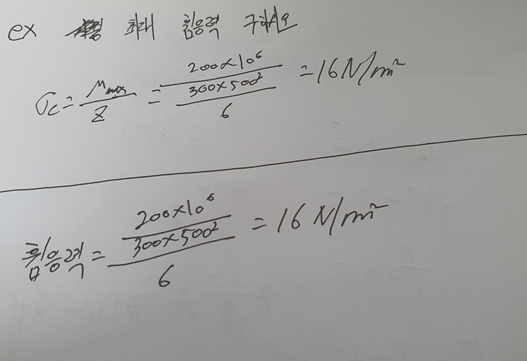 ex 최대 휨응력 구하시오
σc = Mmax/Z = 200×10⁶/300×500²/6 = 16 N/m²
휨응력 = 200×10⁶/300×500²/6 = 16 N/m²